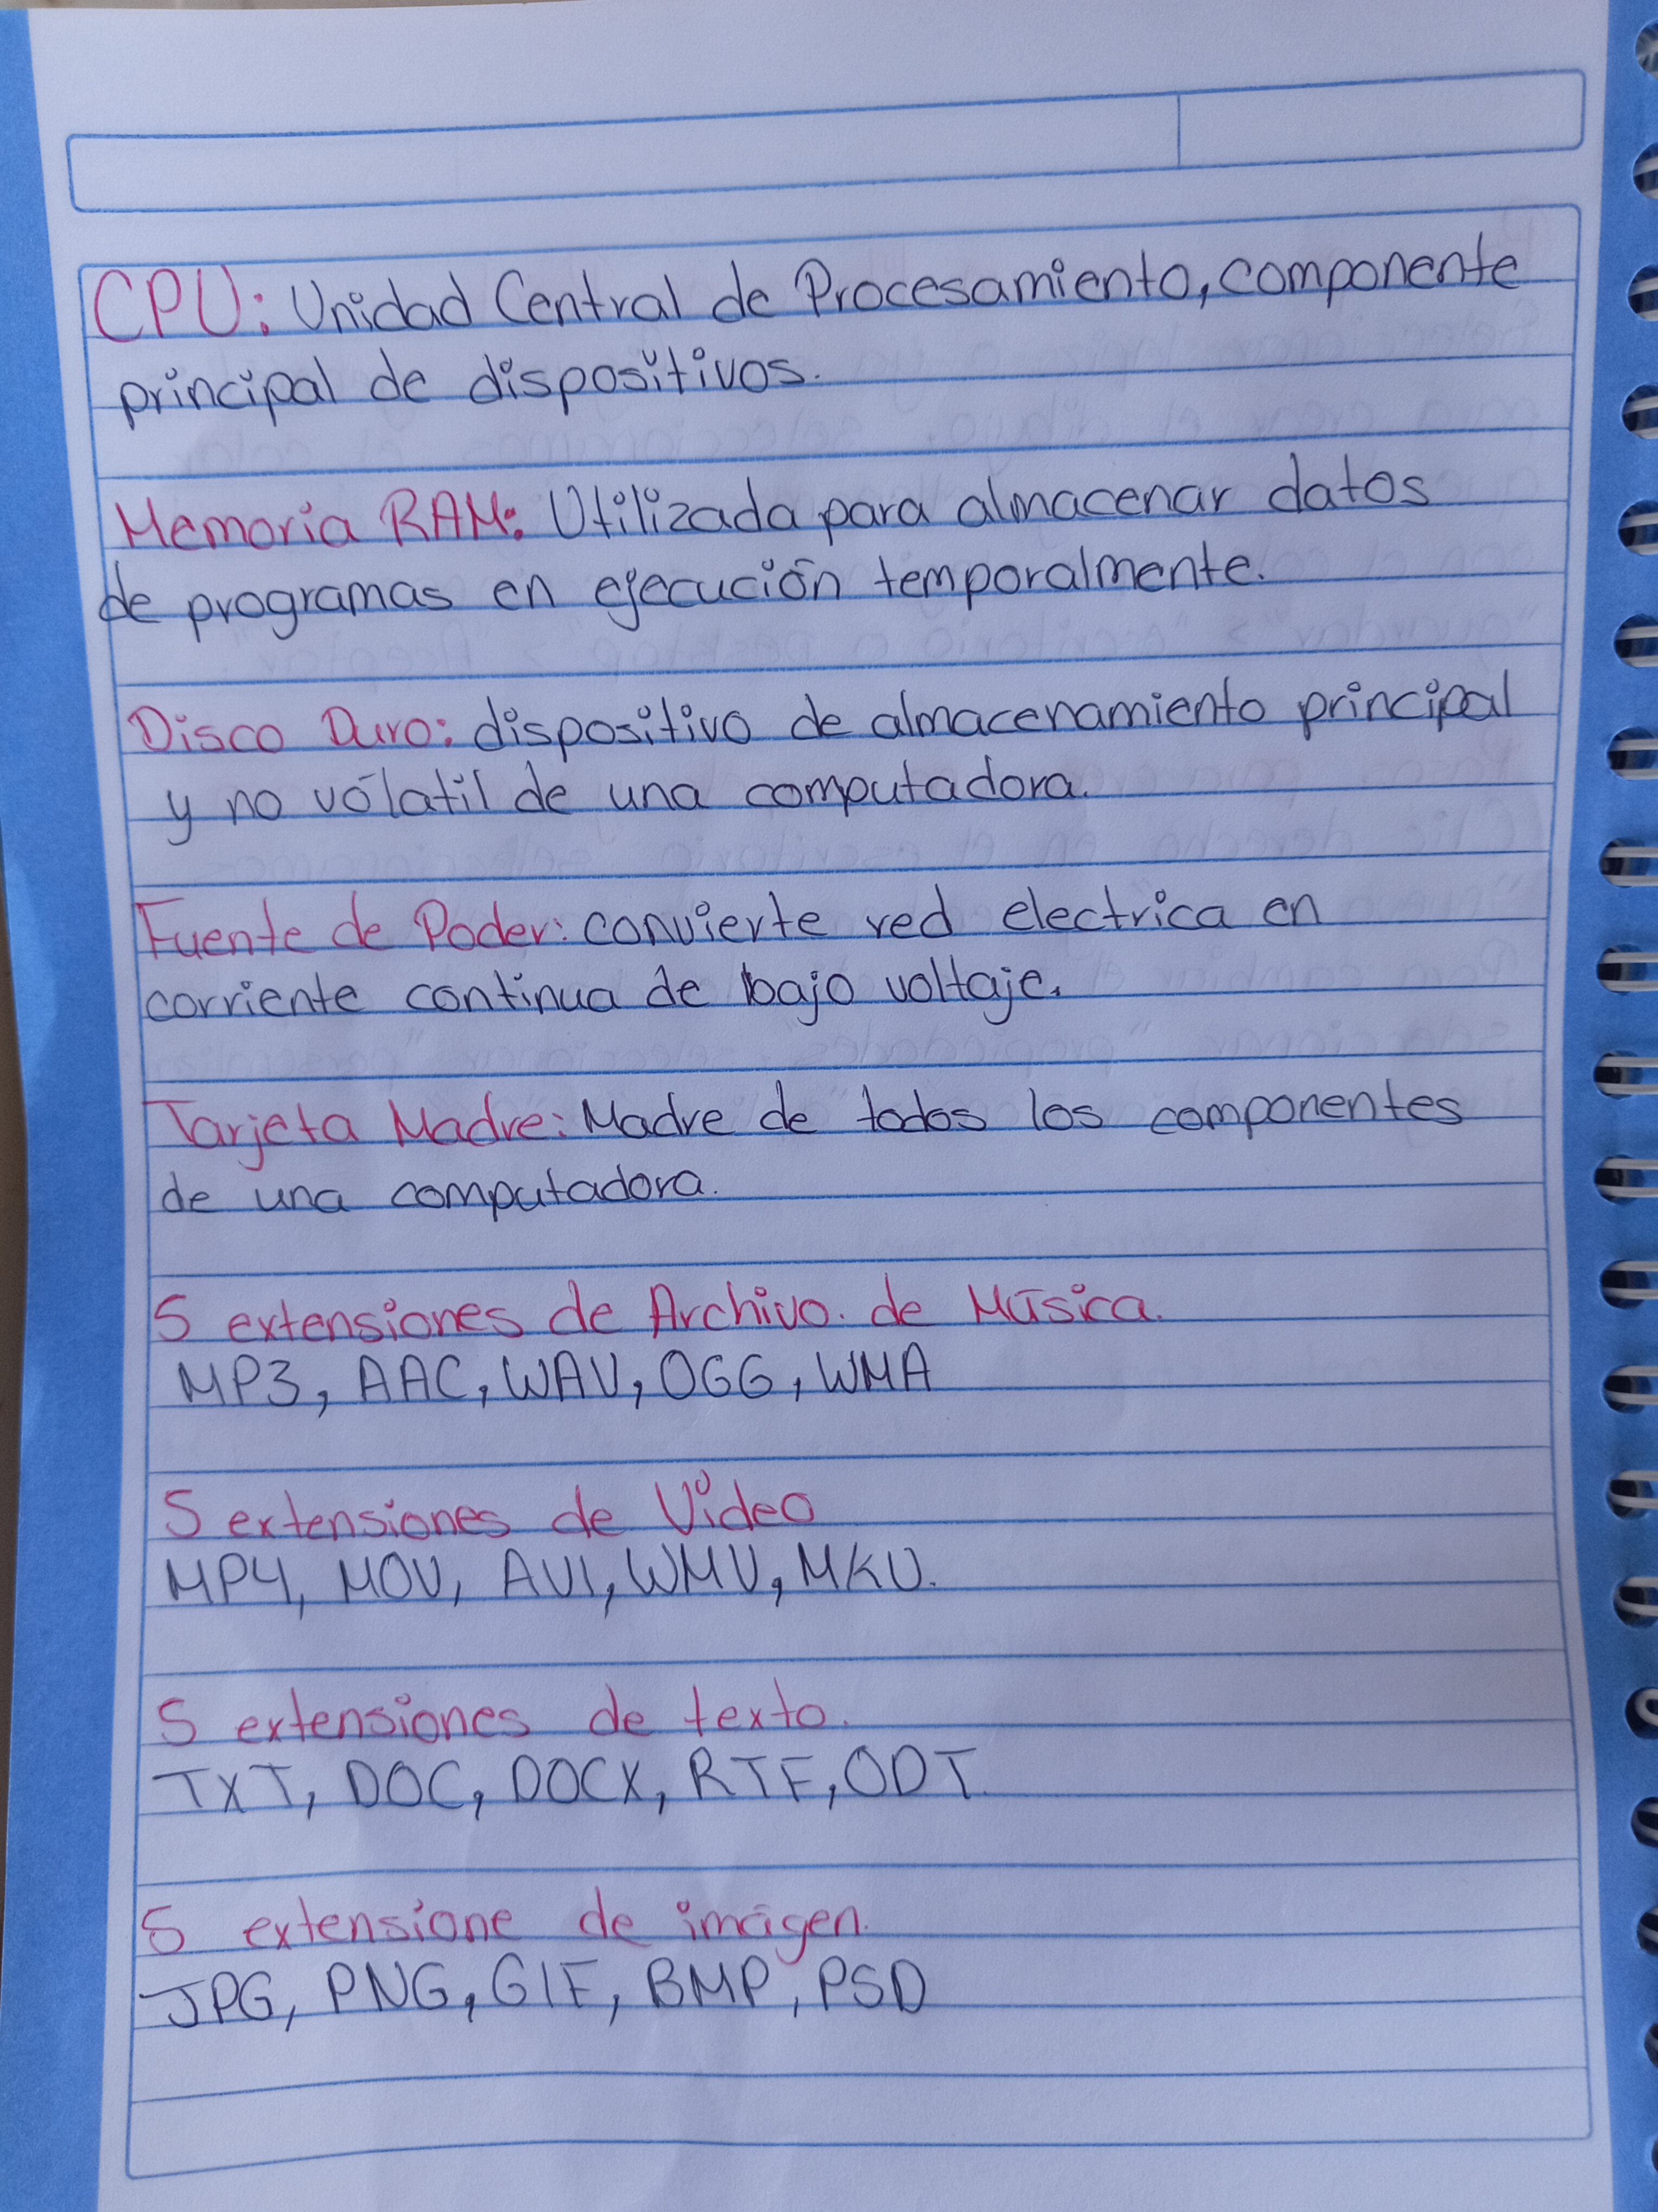 CPU: Unidad Central de Procesamiento, componente
principal de dispositivos.
Memoria RAM: Utilizada para almacenar datos
de programas en ejecución temporalmente.
Disco Duro: dispositivo de almacenamiento principal
y no vólatil de una computadora.
Fuente de Poder: convierte red electrica en
corriente continua de bajo voltaje.
Tarjeta Madre: Madre de todos los componentes
de una computadora.
5 extensiones de Archivo. de Música.
MP3, AAC, WAV, OGG, WMA
5 extensiones de Video
MP4, MOV, AVI, WMV, MKV.
5 extensiones de texto.
TXT, DOC, DOCX, RTF, ODT.
5 extensione de imágen.
JPG, PNG, GIF, BMP, PSD